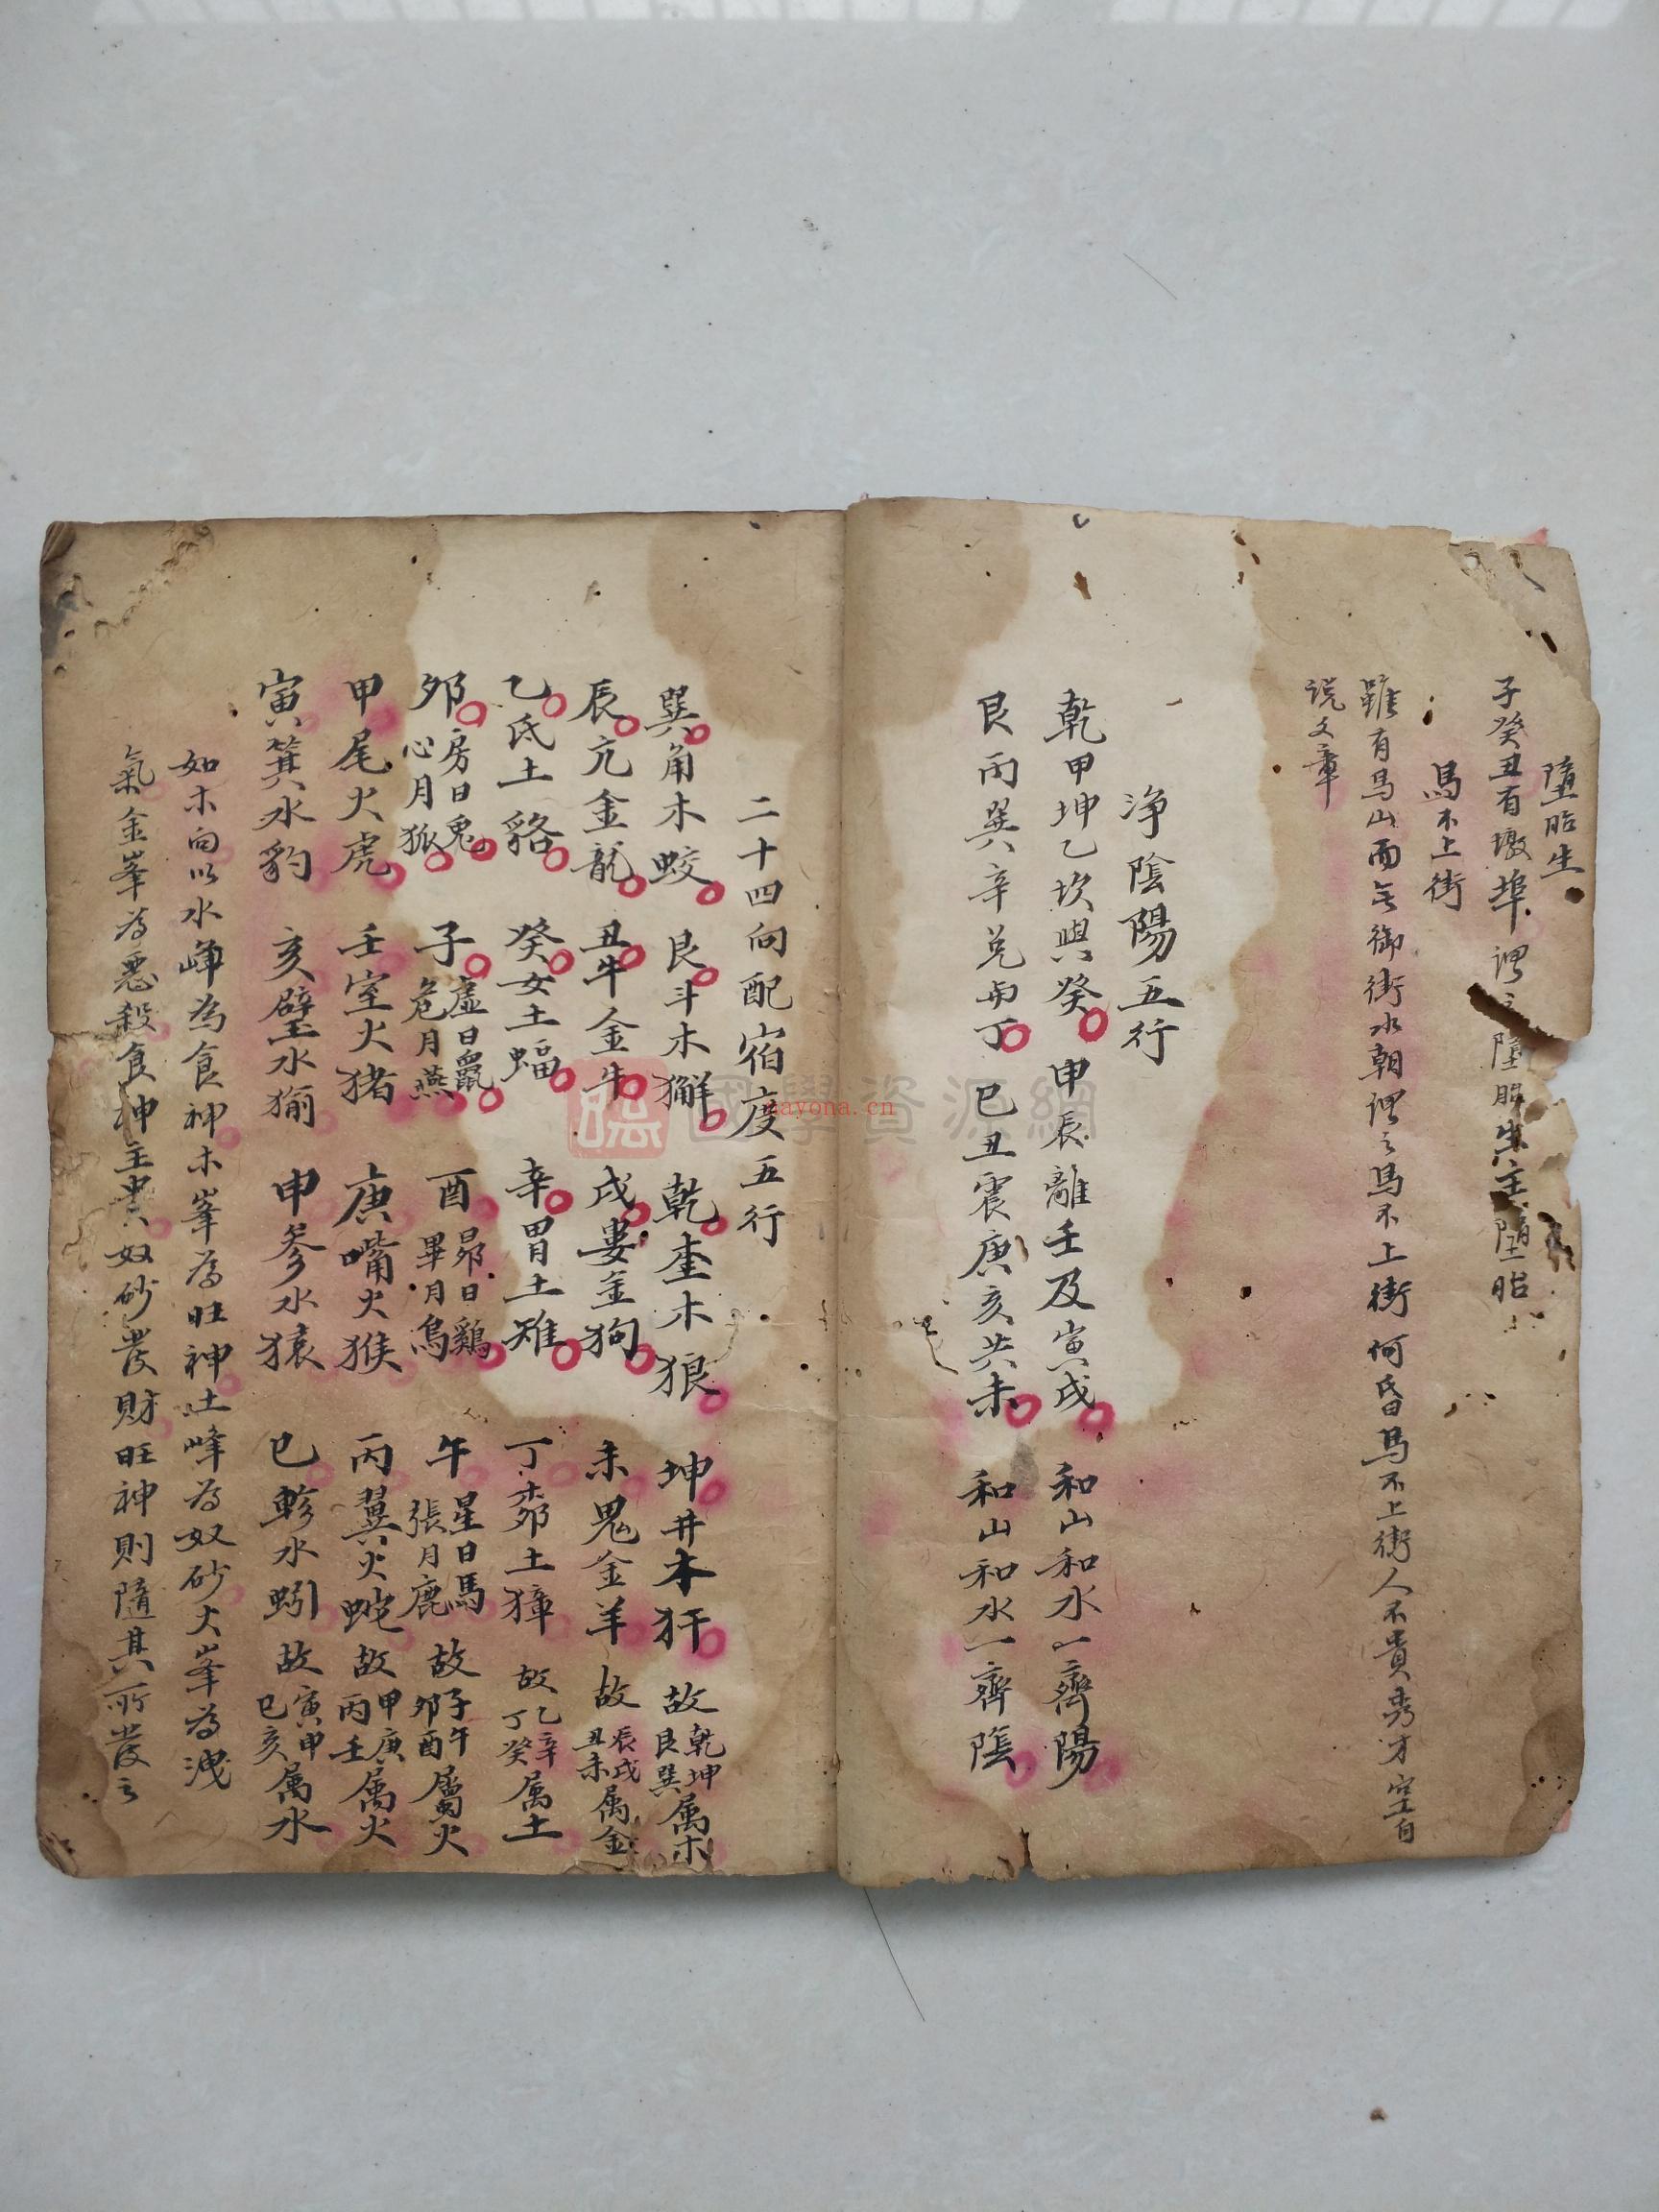 墮胎生
子癸丑有墩埠謂之墮胎生主墮胎
馬不上街
雖有馬山而無御街水朝謂之馬不上街何昏馬不上街人不貴秀才空自
說文章
净陰陽五行
乾甲坤乙坎與癸申辰離壬及寅戌和山和水一齊陽
艮丙巽辛兌與丁巳丑震庚亥共未和山和水一齊陰
二十四向配宿度五行
巽角木蛟 艮斗木獬 乾奎木狼 坤井木犴 故乾坤艮巽属木
辰亢金龍 丑牛金牛 戌婁金狗 未鬼金羊 故辰戌丑未属金
乙氐土貉 癸女土蝠 辛胃土雉 丁桺土獐 故乙辛丁癸属土
夘房日兎心月狐 子虛日鼠危月燕 酉昴日鷄畢月烏 午星日馬張月鹿 故子午夘酉屬火
甲尾火虎 壬室火猪 庚嘴火猴 丙翼火蛇 故甲庚丙壬属火
寅箕水豹 亥壁水㺄 申参水猿 巳軫水蚓 故寅申巳亥属水
如木向以水峰為食神木峯為旺神土峰為奴砂火峯為洩
氣金峯為惡殺食神主貴奴砂發財旺神則隨其所發之
國學資源網
nayona.cn